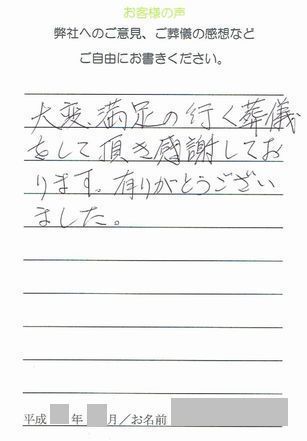 お客様の声
弊社へのご意見、ご葬儀の感想など
ご自由にお書きください。
大変、満足の行く葬儀
をして頂き感謝してお
ります。有りがとうござい
ました。
平成 年 月/お名前